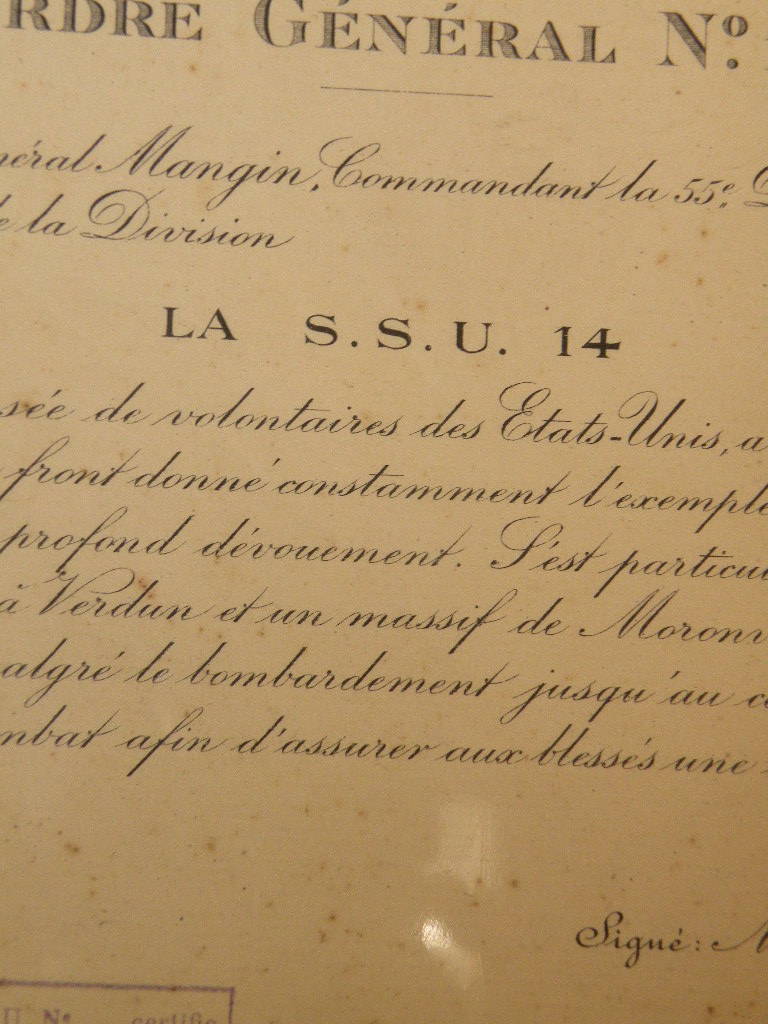 RDRE GÉNÉRAL Nº.
néral Mangin, Commandant la 55e. D
e la Division
LA S.S.U. 14
sée de volontaires des Etats-Unis, a
front donné constamment l'exemple
profond dévouement. S'est particu
à Verdun et un massif de Moronv
algré le bombardement jusqu'au c
mbat afin d'assurer aux blessés une
Signé: M
U Nº certifie